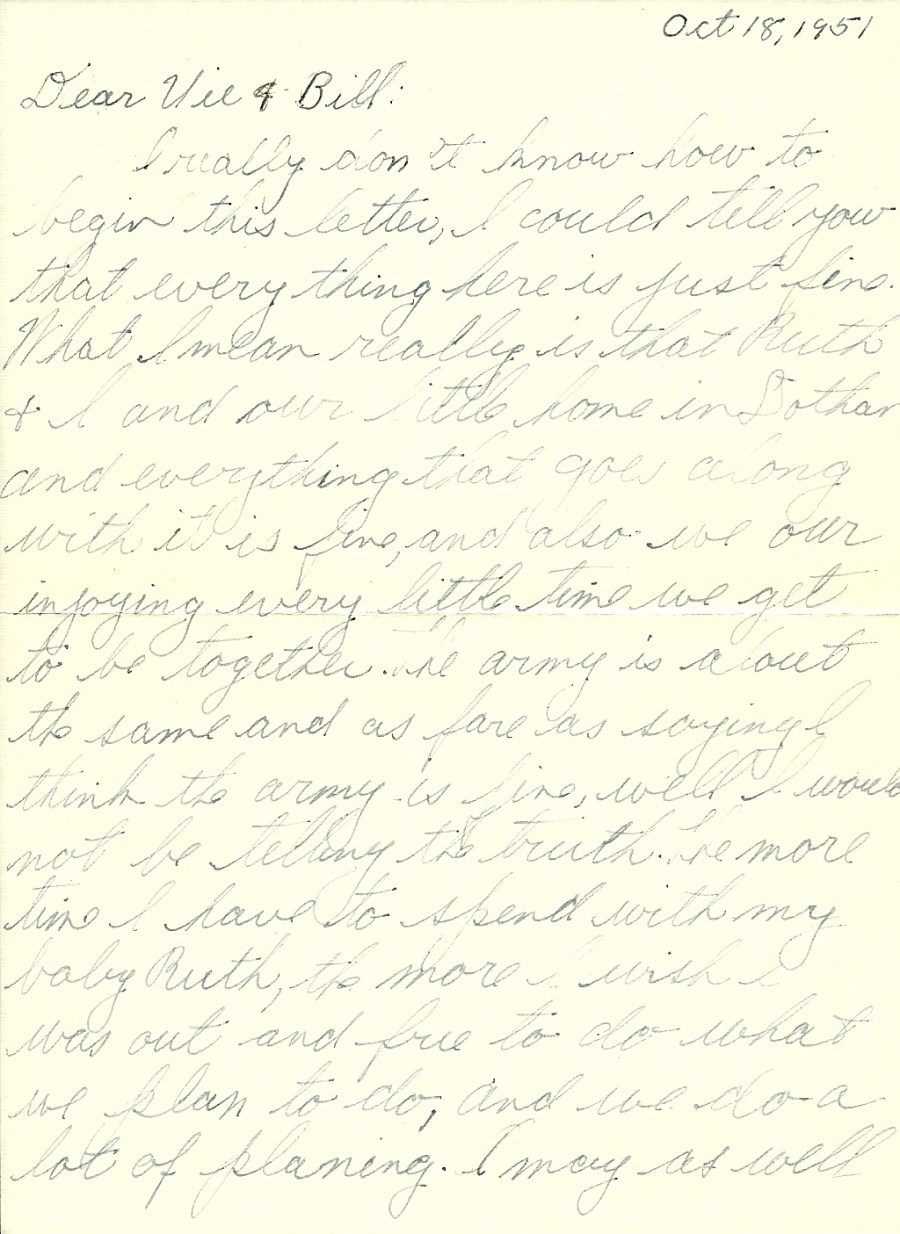 Oct 18, 1951
Dear Vie & Bill:
I really don't know how to
begin this letter, I could tell you
that everything here is just fine.
What I mean really is that Ruth
& I and our little home in Dothan
and everything that goes along
with it is fine, and also we our
injoying every little time we get
to be together. The army is about
the same and as fare as saying I
think the army is fine, well I would
not be telling the truth. The more
time I have to spend with my
baby Ruth, the more I wish I
was out and free to do what
we plan to do, and we do a
lot of planing. I may as well